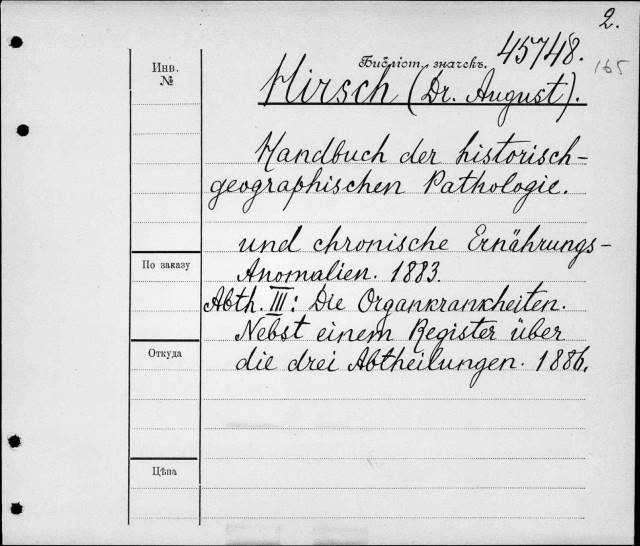 2.
Инв.
№
Библіот. значекъ. 45748.
165
Hirsch (Dr. August).
Handbuch der historisch-
geographischen Pathologie.
und chronische Ernährungs-
Anomalien. 1883.
По заказу
Abth. III: Die Organkrankheiten.
Nebst einem Register über
Откуда
die drei Abtheilungen. 1886.
Цѣна